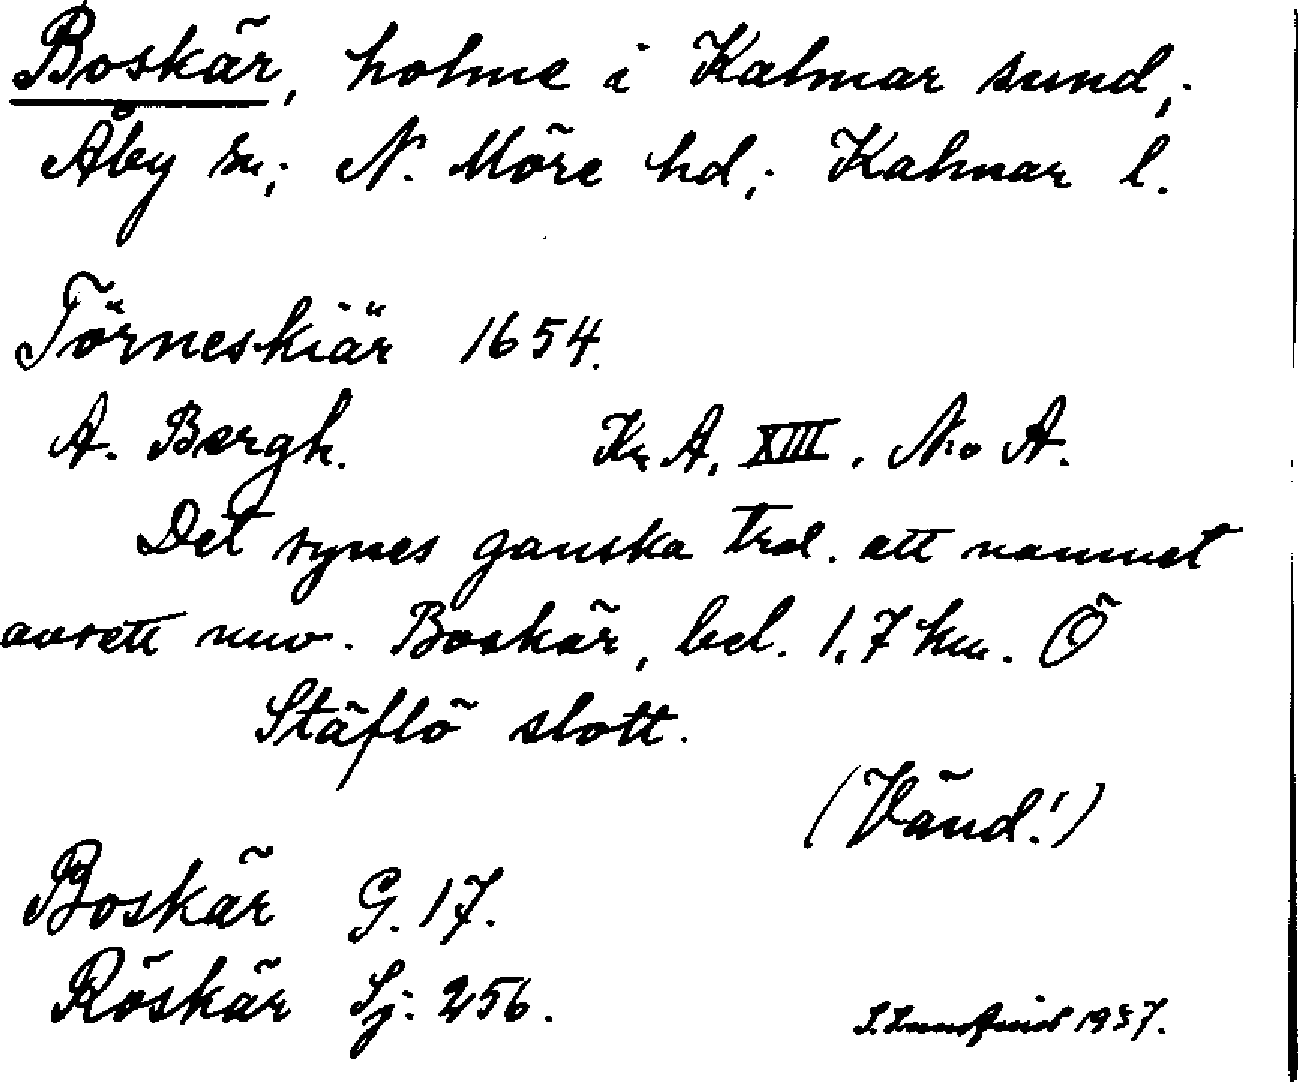 Boskär, holme i Kalmar sund,
Åby sn; N. Möre hd; Kalmar l.
Törneskiär 1654.
A. Bergh. Kr A. XIII. No A.
Det synes ganska trol. att namnet
avsett nuv. Boskär, bel. 1,7 km. Ö
Stäflö slott.
(Vänd!)
Boskär G. 17.
Röskär Sj: 256.
1937.